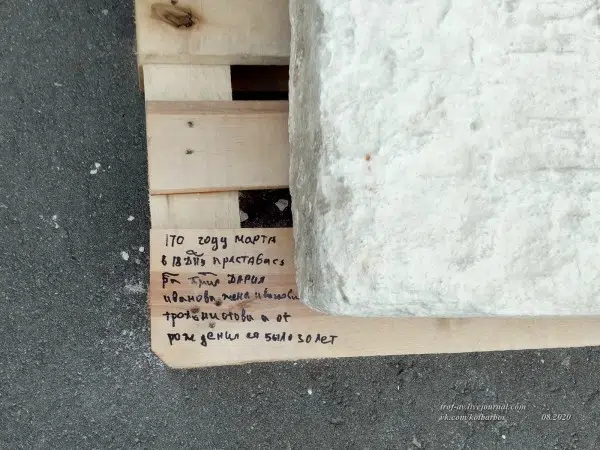 170 году марта
в 18 днь престабась
ра бжиа Дария
иванова жена ивановича
а от
рождения ея было 30 лет
trof-av.livejournal.com
vk.com/kotbarbos
08.2020